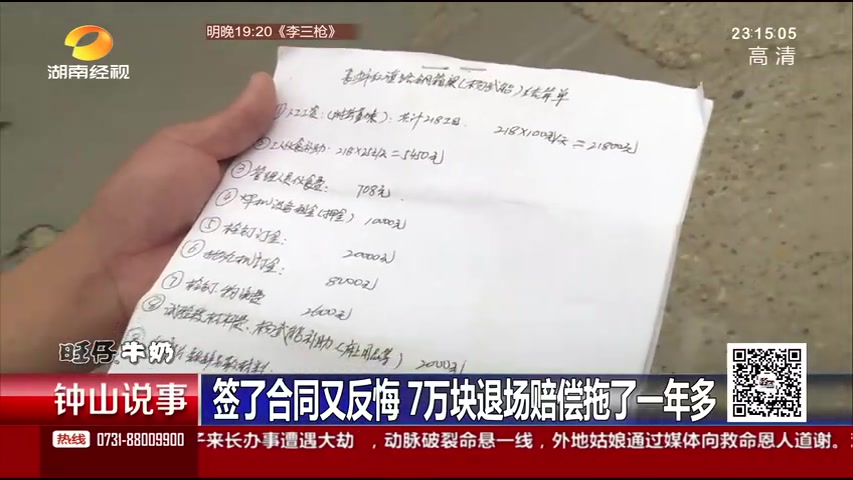 明晚19:20《李三枪》
23:15:05
高清
湖南经视
结算单
①人工工资： 共计218工日 218×100元/天=21800元
②工人伙食补助：218×25元/天=5450元
③管理人员伙食费： 708元
④焊机设备租金(押金) 10000元
⑤栓钉订金： 20000元
⑥ 订金： 8000元
⑦栓钉 费 2600元
⑧试验 补助 2000元
旺仔牛奶
钟山说事
签了合同又反悔 7万块退场赔偿拖了一年多
热线 0731-88009900
子来长办事遭遇大劫 ，动脉破裂命悬一线，外地姑娘通过媒体向救命恩人道谢。